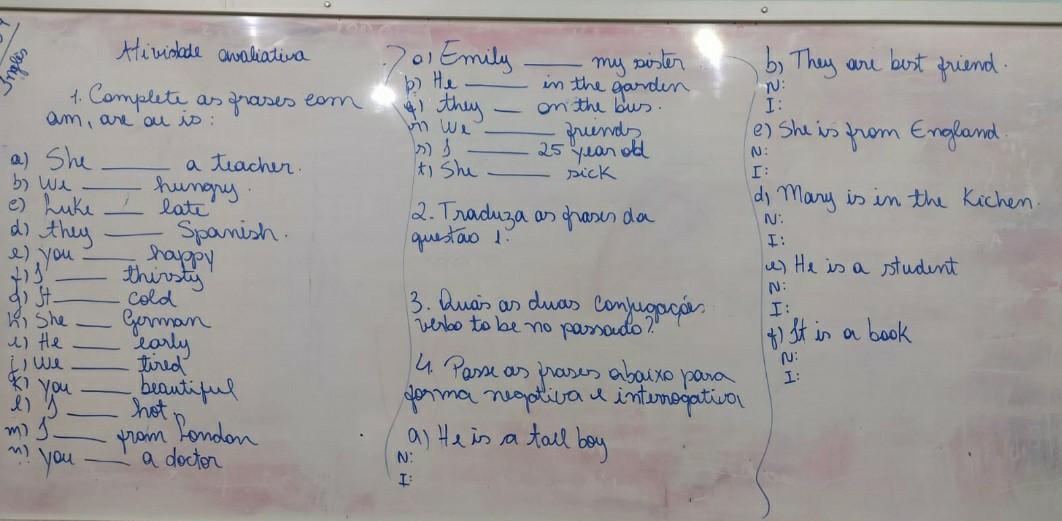 Inglês
Atividade avaliativa
1. Complete as frases com
am, are ou is:
a) She ____ a teacher.
b) We ____ hungry.
c) Luke ____ late
d) they ____ Spanish.
e) you ____ happy
f) I ____ thirsty
g) It ____ cold
h) She ____ German
i) He ____ early
j) We ____ tired
k) you ____ beautiful
l) I ____ hot
m) I ____ from London
n) you ____ a doctor
o) Emily ____ my sister
p) He ____ in the garden
q) they ____ on the bus.
r) We ____ friends
s) I ____ 25 year old
t) She ____ sick
2. Traduza as frases da
questão 1.
3. Quais as duas conjugações
verbo to be no passado?
4. Passe as frases abaixo para
forma negativa e interrogativa
a) He is a tall boy
N:
I:
b) They are best friend.
N:
I:
c) She is from England.
N:
I:
d) Mary is in the Kichen.
N:
I:
e) He is a student
N:
I:
f) It is a book
N:
I: